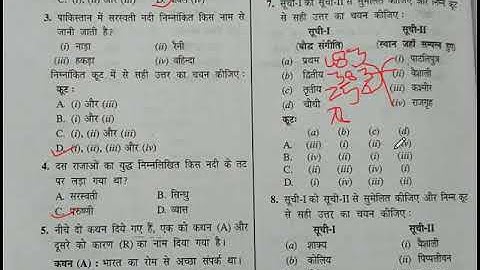 3. पाकिस्तान में सरस्वती नदी निम्नांकित किस नाम से
जानी जाती है?
(i) नाड़ा (ii) रैनी
(iii) हकड़ा (iv) वहिन्दा
निम्नांकित कूट में से सही उत्तर का चयन कीजिए :
कूट :
A. (i) और (iii)
B. (i) और (ii)
C. (i), (ii) और (iii)
D. (i), (ii), (iii) और (iv)
4. दस राजाओं का युद्ध निम्नलिखित किस नदी के तट
पर लड़ा गया था?
A. सरस्वती B. सिन्धु
C. परुष्णी D. व्यास
5. नीचे दो कथन दिये गए हैं, एक को कथन (A) और
दूसरे को कारण (R) का नाम दिया गया है।
कथन (A) : भारत का रोम से अच्छा संपर्क था।
7. सूची-I को सूची-II से सुमेलित कीजिए और निम्न कूट
से सही उत्तर का चयन कीजिए :
सूची-I सूची-II
(बौद्ध संगीति) (स्थान जहाँ सम्पन्न हुए)
(a) प्रथम 483 (i) पाटलिपुत्र
(b) द्वितीय 383 (ii) वैशाली
(c) तृतीय (iii) कश्मीर
(d) चौथी (iv) राजगृह
कूटः
(a) (b) (c) (d)
A. (iii) (i) (ii) (iv)
B. (iv) (ii) (i) (iii)
C. (iv) (iii) (ii) (i)
D. (i) (ii) (iii) (iv)
8. सूची-I को सूची-II से सुमेलित कीजिए और निम्न कूट
से सही उत्तर का चयन कीजिए :
सूची-I सूची-II
(a) शाक्य (i) वैशाली
(b) कोलिय (ii) पिप्पलीवन